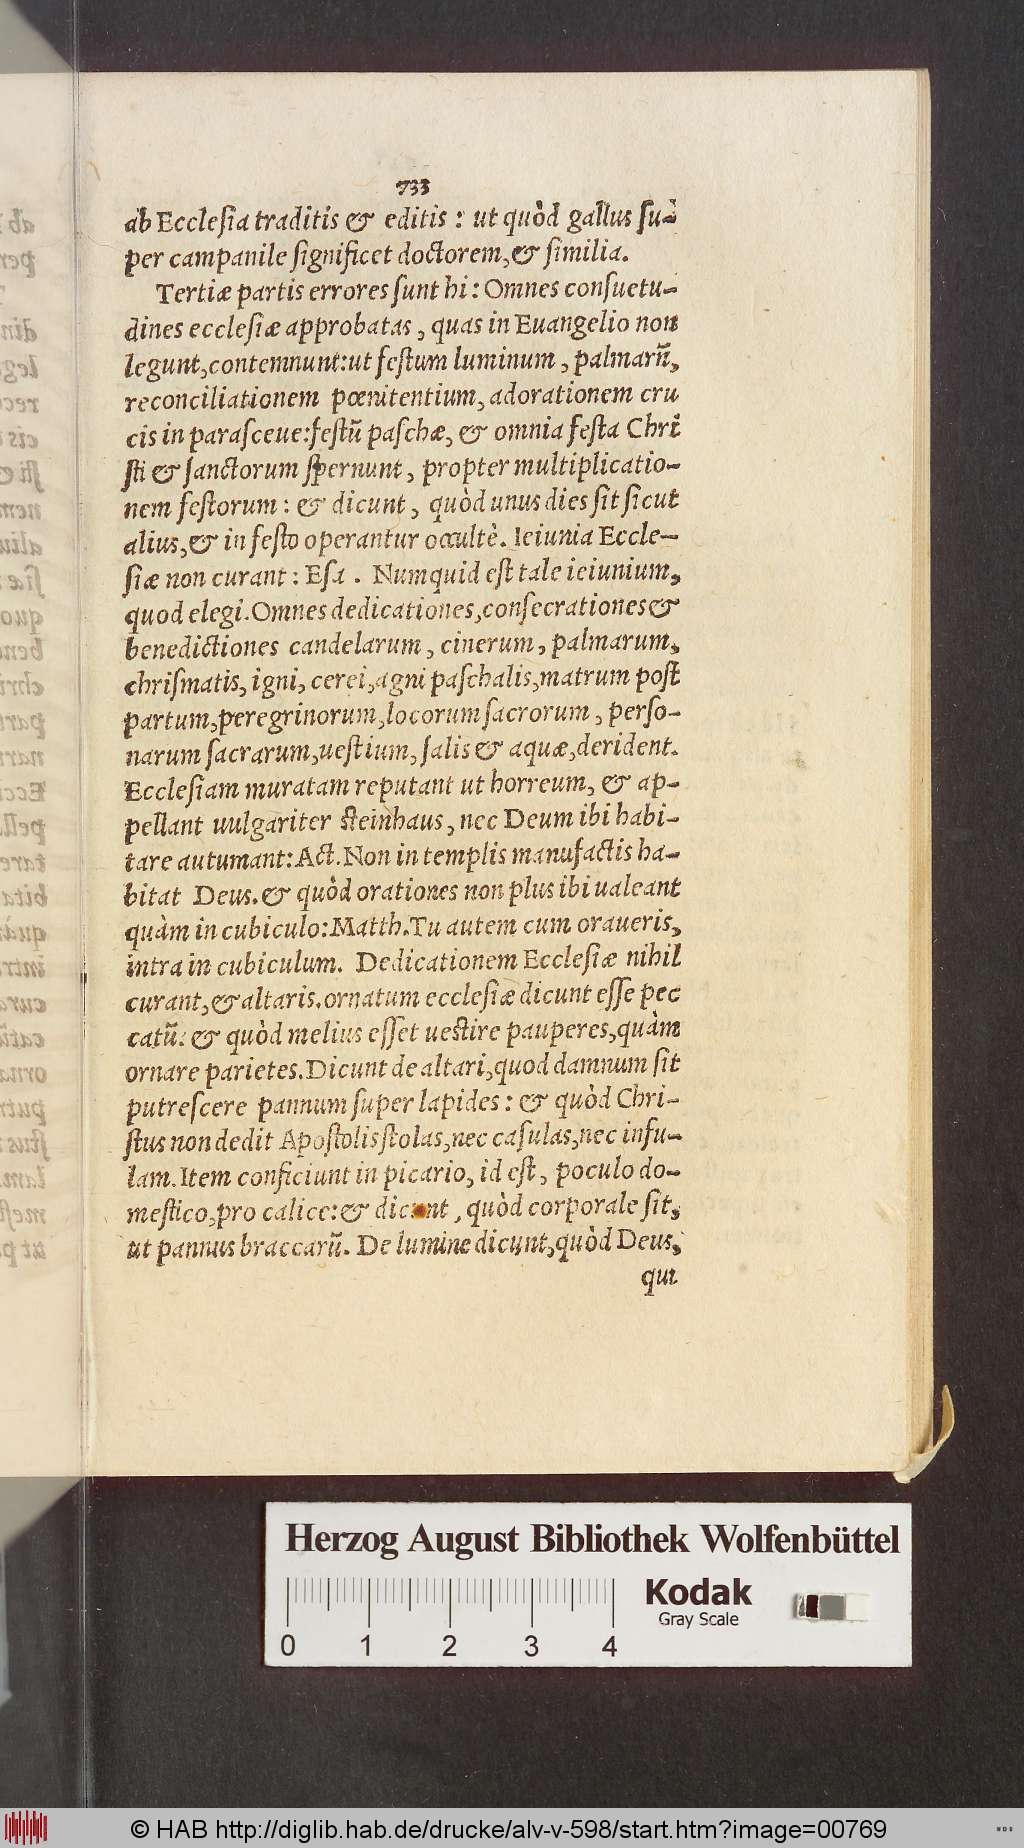 733
ab Ecclesia traditis & editis : ut quòd gallus su-
per campanile significet doctorem, & similia.
Tertiæ partis errores sunt hi : Omnes consuetu-
dines ecclesiæ approbatas, quas in Euangelio non
legunt, contemnunt: ut festum luminum, palmarũ,
reconciliationem pœnitentium, adorationem cru
cis in parasceue: festũ paschæ, & omnia festa Chri
sti & sanctorum spernunt, propter multiplicatio-
nem festorum : & dicunt, quòd unus dies sit sicut
alius, & in festo operantur occultè. Ieiunia Eccle-
siæ non curant : Esa. Numquid est tale ieiunium,
quod elegi. Omnes dedicationes, consecrationes &
benedictiones candelarum, cinerum, palmarum,
chrismatis, igni, cerei, agni paschalis, matrum post
partum, peregrinorum, locorum sacrorum, perso-
narum sacrarum, uestium, salis & aquæ, derident.
Ecclesiam muratam reputant ut horreum, & ap-
pellant uulgariter steinhaus, nec Deum ibi habi-
tare autumant: Act. Non in templis manufactis ha-
bitat Deus. & quòd orationes non plus ibi ualeant
quàm in cubiculo: Matth. Tu autem cum oraueris,
intra in cubiculum. Dedicationem Ecclesiæ nihil
curant, & altaris. ornatum ecclesiæ dicunt esse pec
catũ: & quòd melius esset uestire pauperes, quàm
ornare parietes. Dicunt de altari, quod damnum sit
putrescere pannum super lapides : & quòd Chri-
stus non dedit Apostolis stolas, nec casulas, nec infu-
lam. Item conficiunt in picario, id est, poculo do-
mestico, pro calice: & dicunt, quòd corporale sit,
ut pannus braccarũ. De lumine dicunt, quòd Deus,
qui
Herzog August Bibliothek Wolfenbüttel
Kodak
Gray Scale
0 1 2 3 4
© HAB http://diglib.hab.de/drucke/alv-v-598/start.htm?image=00769